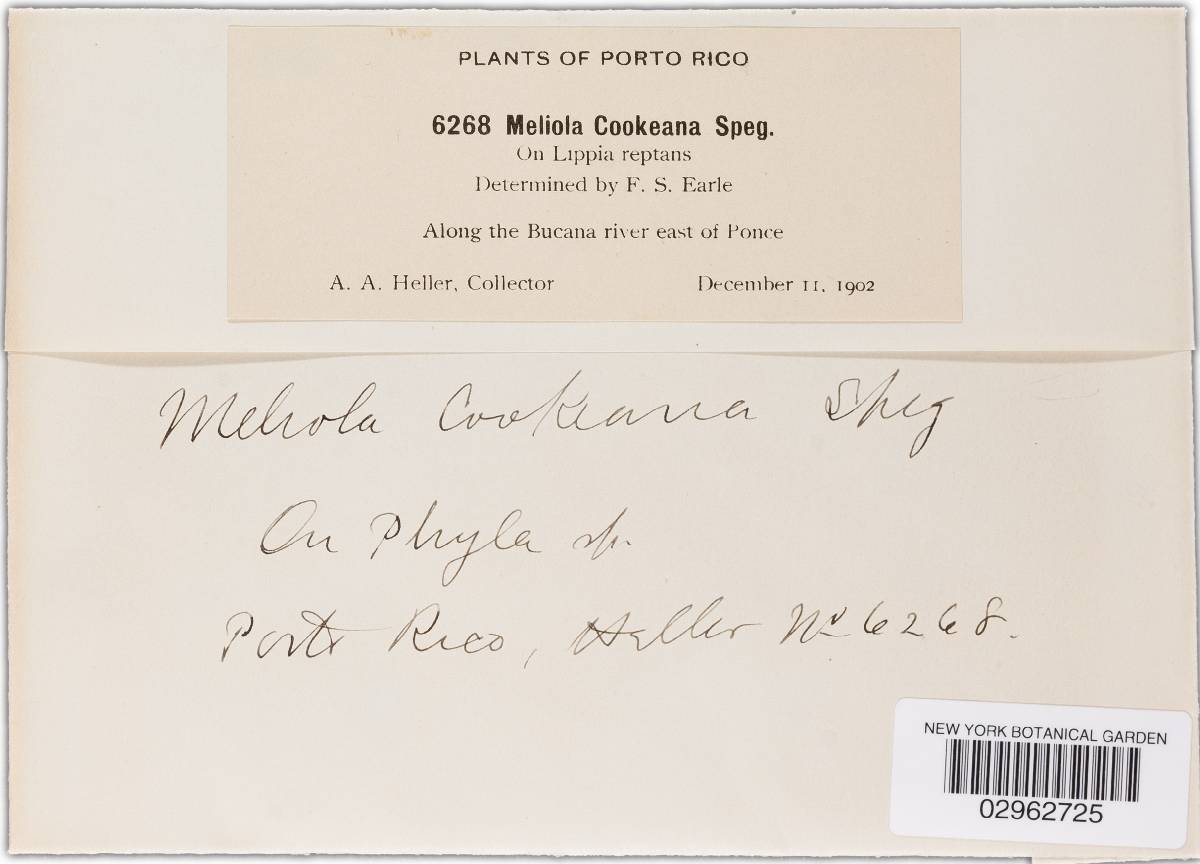 PLANTS OF PORTO RICO
6268 Meliola Cookeana Speg.
On Lippia reptans
Determined by F. S. Earle
Along the Bucana river east of Ponce
A. A. Heller, Collector December 11, 1902
Meliola Cookeana Speg
On Phyla sp.
Porto Rico, Heller No 6268.
NEW YORK BOTANICAL GARDEN
02962725